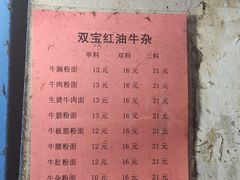 双宝红油牛杂
单料 双料 三料
牛腩粉面 13元 16元 21元
牛肉粉面 13元 16元 21元
生烫牛肉面 13元 16元 21元
牛筋粉面 13元 16元 21元
牛板筋粉面 12元 16元 21元
牛腰粉面 12元 16元 21元
牛肚粉面 12元 16元 21元
牛杂粉面 10元 16元 21元